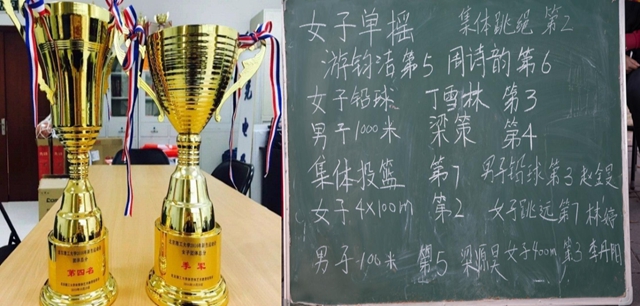 第四名
季军
女子单摇 集体跳绳 第2
游钧洁 第5 周诗韵 第6
女子铅球 丁雪林 第3
男子1000米 梁策 第4
集体投篮 第7 男子铅球 第3 赵金昊
女子4×100m 第2 女子跳远 第7 林婷
男子100米 第5 梁源昊 女子400m 第3 李丹阳